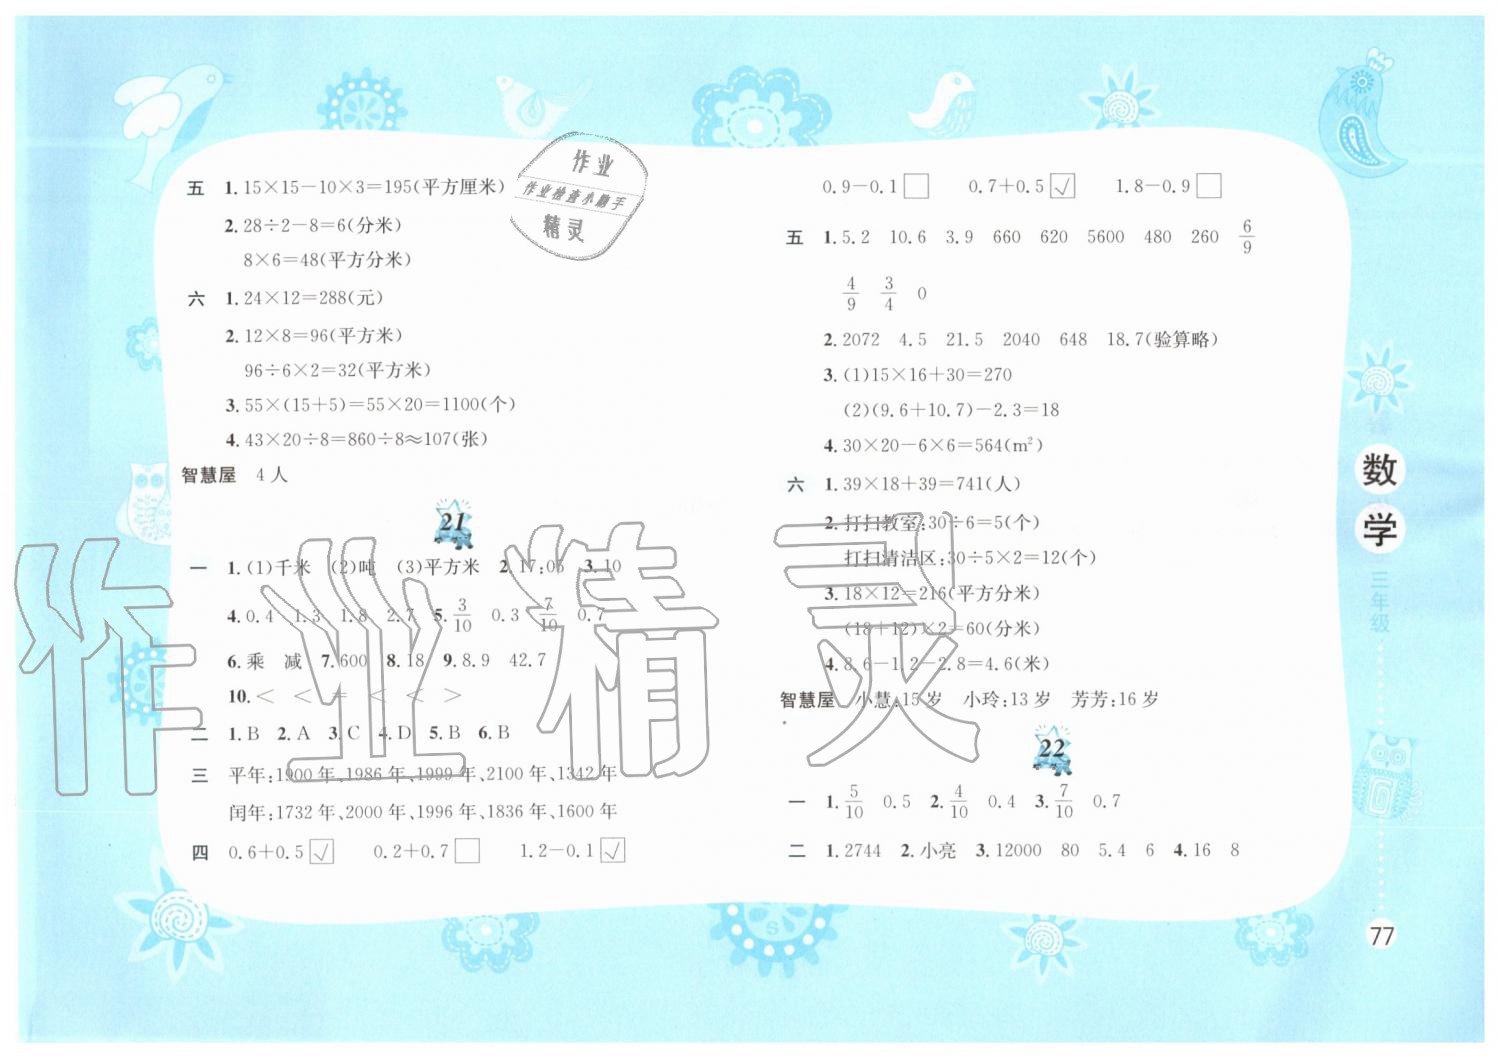 五 1. 15×15-10×3=195(平方厘米)
2. 28÷2-8=6(分米)
8×6=48(平方分米)
六 1. 24×12=288(元)
2. 12×8=96(平方米)
96÷6×2=32(平方米)
3. 55×(15+5)=55×20=1100(个)
4. 43×20÷8=860÷8≈107(张)
智慧屋 4人
21
一 1. (1)千米 (2)吨 (3)平方米 2. 17:05 3. 10
4. 0.4 1.3 1.8 2.7 5. 3/10 0.3 7/10 0.7
6. 乘 减 7. 600 8. 18 9. 8.9 42.7
10. < < = < < >
二 1. B 2. A 3. C 4. D 5. B 6. B
三 平年:1900年、1986年、1999年、2100年、1342年
闰年:1732年、2000年、1996年、1836年、1600年
四 0.6+0.5☑ 0.2+0.7☐ 1.2-0.1☑
0.9-0.1☐ 0.7+0.5☑ 1.8-0.9☐
五 1. 5.2 10.6 3.9 660 620 5600 480 260 6/9
4/9 3/4 0
2. 2072 4.5 21.5 2040 648 18.7(验算略)
3. (1)15×16+30=270
(2)(9.6+10.7)-2.3=18
4. 30×20-6×6=564(m²)
六 1. 39×18+39=741(人)
2. 打扫教室:30÷6=5(个)
打扫清洁区:30÷5×2=12(个)
3. 18×12=216(平方分米)
(18+12)×2=60(分米)
4. 8.6-1.2-2.8=4.6(米)
智慧屋 小慧:15岁 小玲:13岁 芳芳:16岁
22
一 1. 5/10 0.5 2. 4/10 0.4 3. 7/10 0.7
二 1. 2744 2. 小亮 3. 12000 80 5.4 6 4. 16 8
数学 三年级
77
作业
作业检查小助手
精灵
作业精灵